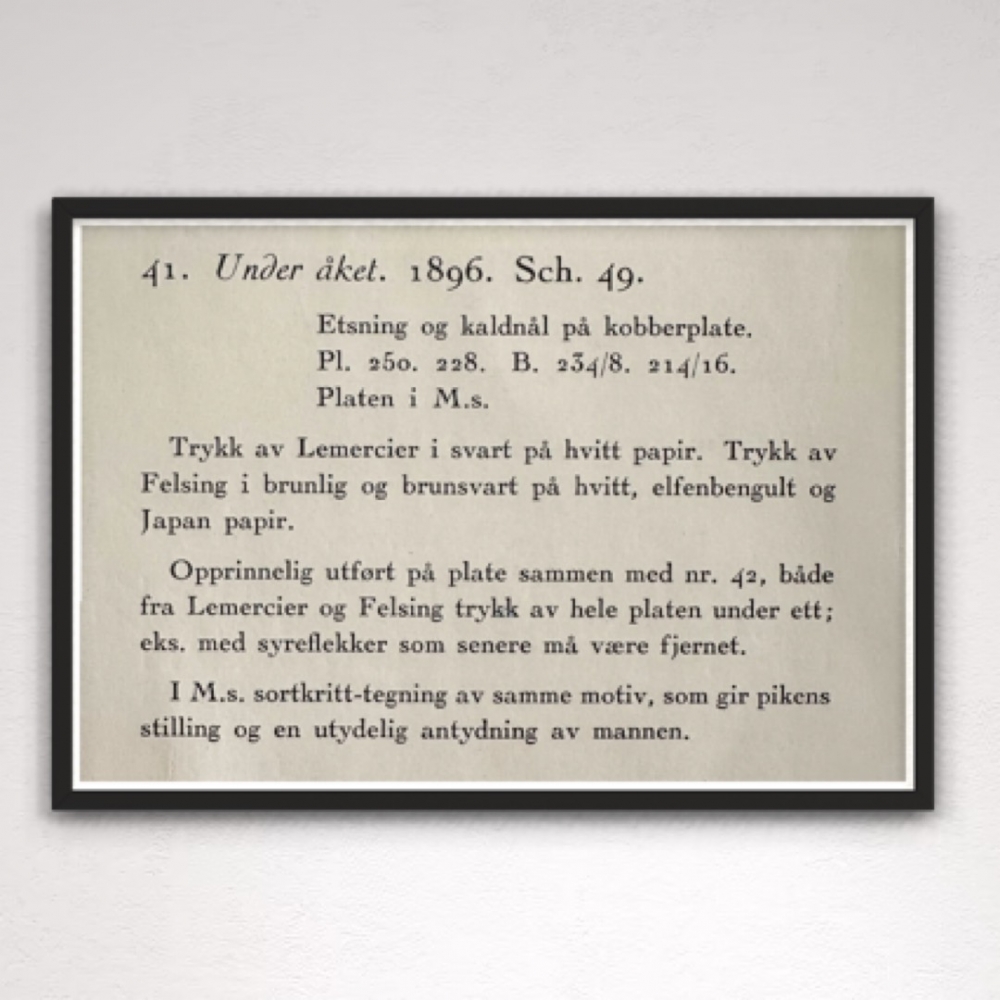 41. Under åket. 1896. Sch. 49.
Etsning og kaldnål på kobberplate.
Pl. 250. 228. B. 234/8. 214/16.
Platen i M.s.
Trykk av Lemercier i svart på hvitt papir. Trykk av
Felsing i brunlig og brunsvart på hvitt, elfenbengult og
Japan papir.
Opprinnelig utført på plate sammen med nr. 42, både
fra Lemercier og Felsing trykk av hele platen under ett;
eks. med syreflekker som senere må være fjernet.
I M.s. sortkritt-tegning av samme motiv, som gir pikens
stilling og en utydelig antydning av mannen.